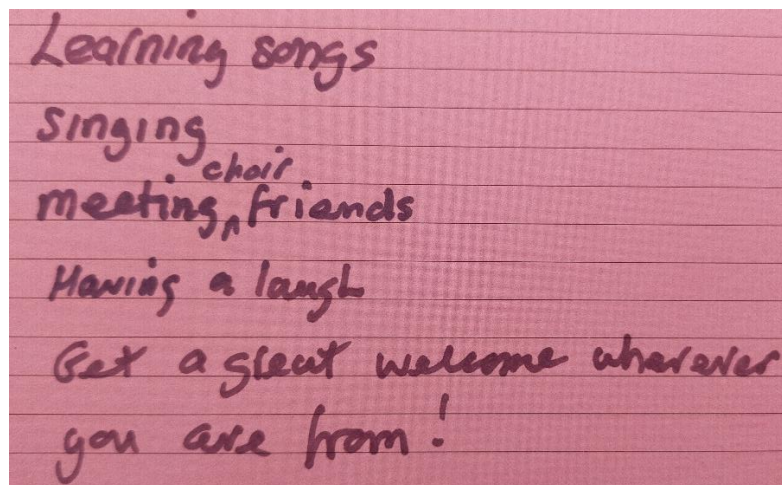 Learning songs
singing
meeting choir friends
Having a laugh
Get a great welcome wherever
you are from!